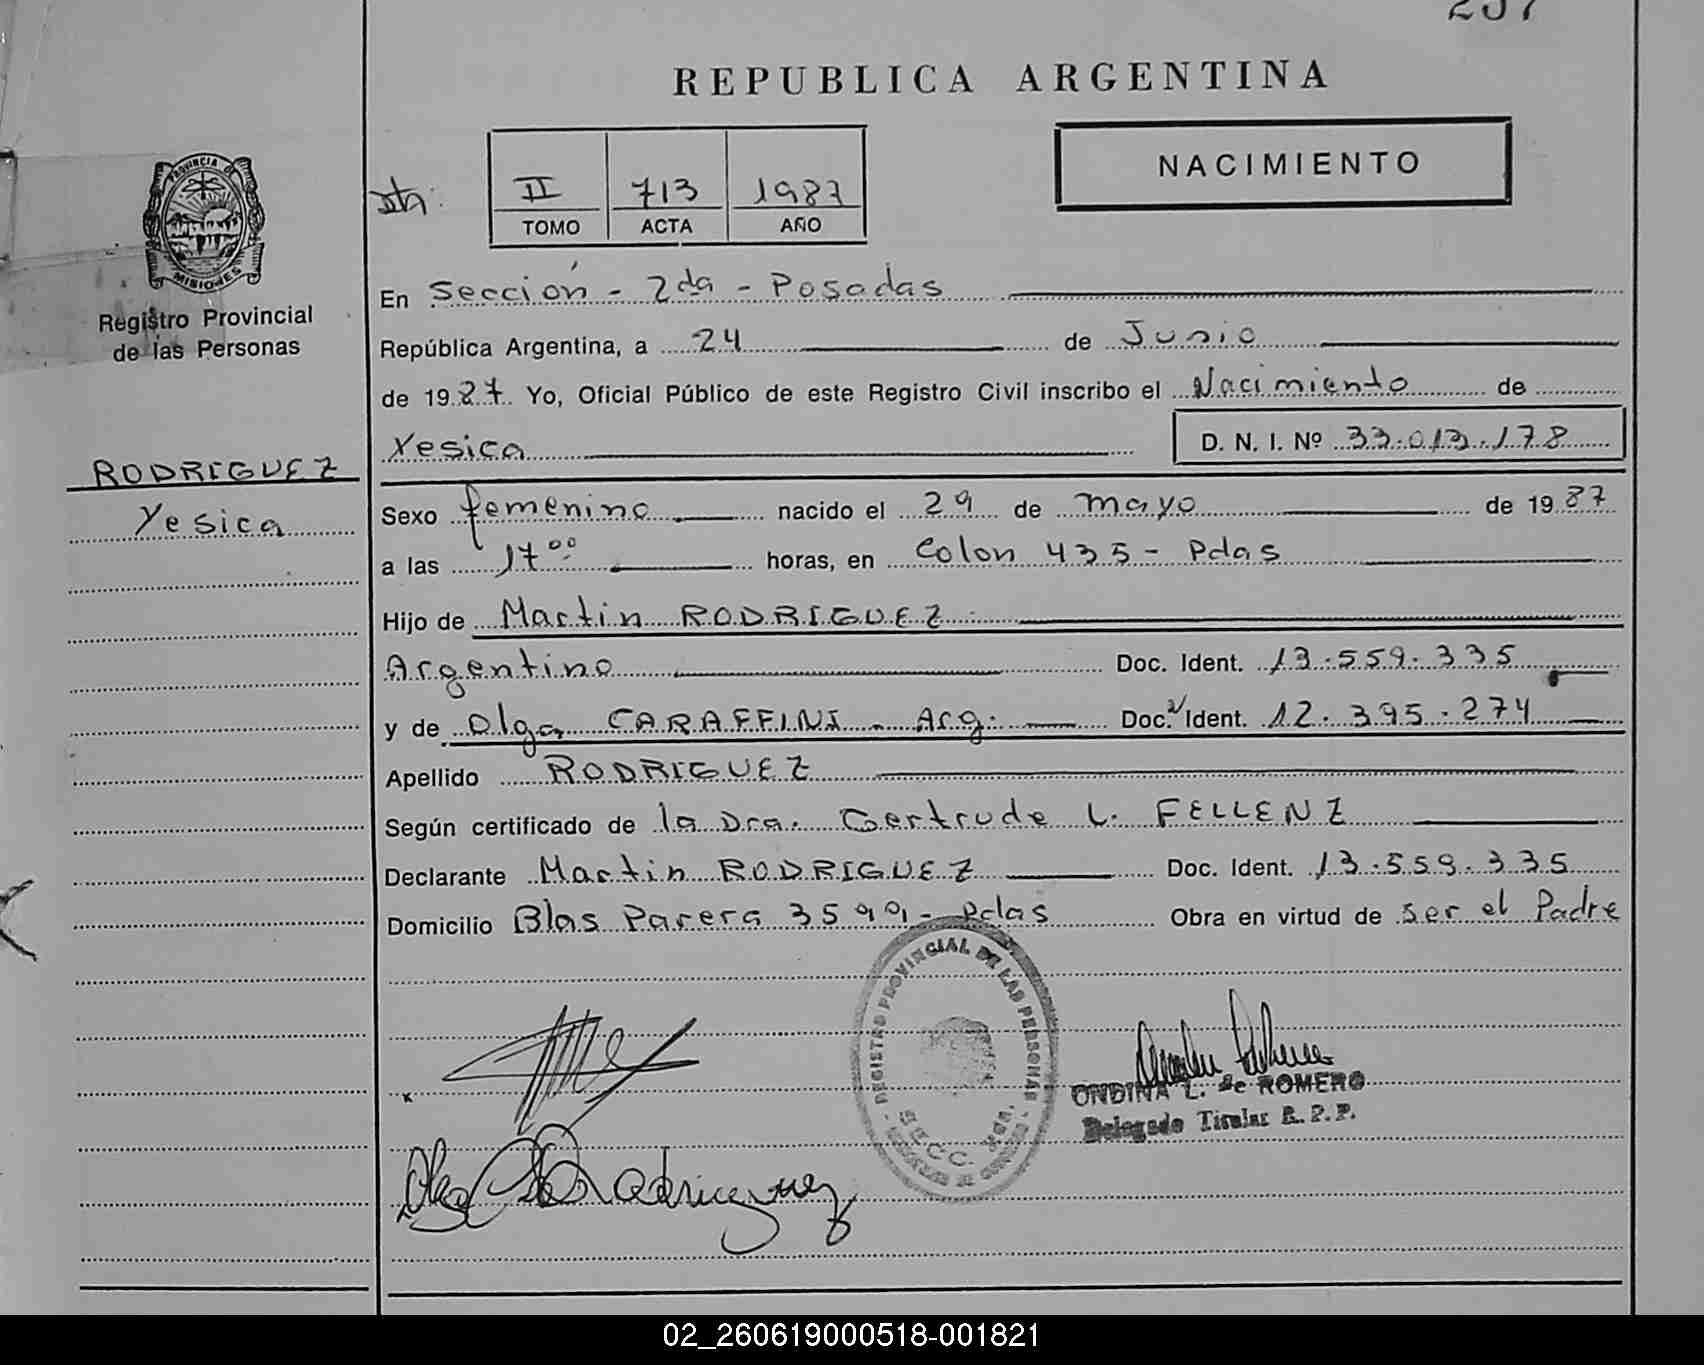 REPUBLICA ARGENTINA
NACIMIENTO
II 713 1987
TOMO ACTA AÑO
PROVINCIA DE
MISIONES
Registro Provincial
de las Personas
RODRIGUEZ
Yesica
En Sección - 2da - Posadas
República Argentina, a 24 de Junio
de 1987. Yo, Oficial Público de este Registro Civil inscribo el Nacimiento de
Yesica D. N. I. Nº 33.013.178
Sexo femenino nacido el 29 de mayo de 1987
a las 17 00 horas, en Colon 435 - Pdas
Hijo de Martin RODRIGUEZ
Argentino Doc. Ident. 13.559.335
y de Olga CARAFFINI - Arg. Doc. Ident. 12.395.274
Apellido RODRIGUEZ
Según certificado de la Dra. Gertrude L. FELLENZ
Declarante Martin RODRIGUEZ Doc. Ident. 13.559.335
Domicilio Blas Parera 3599 - Pdas Obra en virtud de ser el Padre
REGISTRO PROVINCIAL DE LAS PERSONAS
SECC.
ONDINA L. de ROMERO
Delegado Titular R. P. P.
02_260619000518-001821